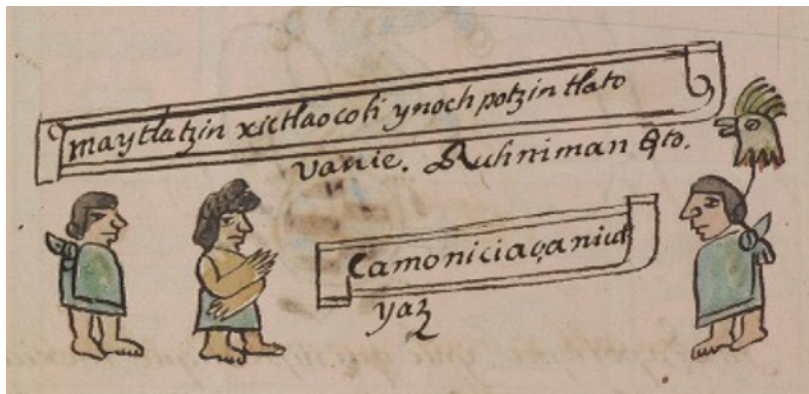 may tlatzin xictlaocoli ynoch potzin tlato
vanie. Auh niman q̃to.
Camo niciaça niad
yaz